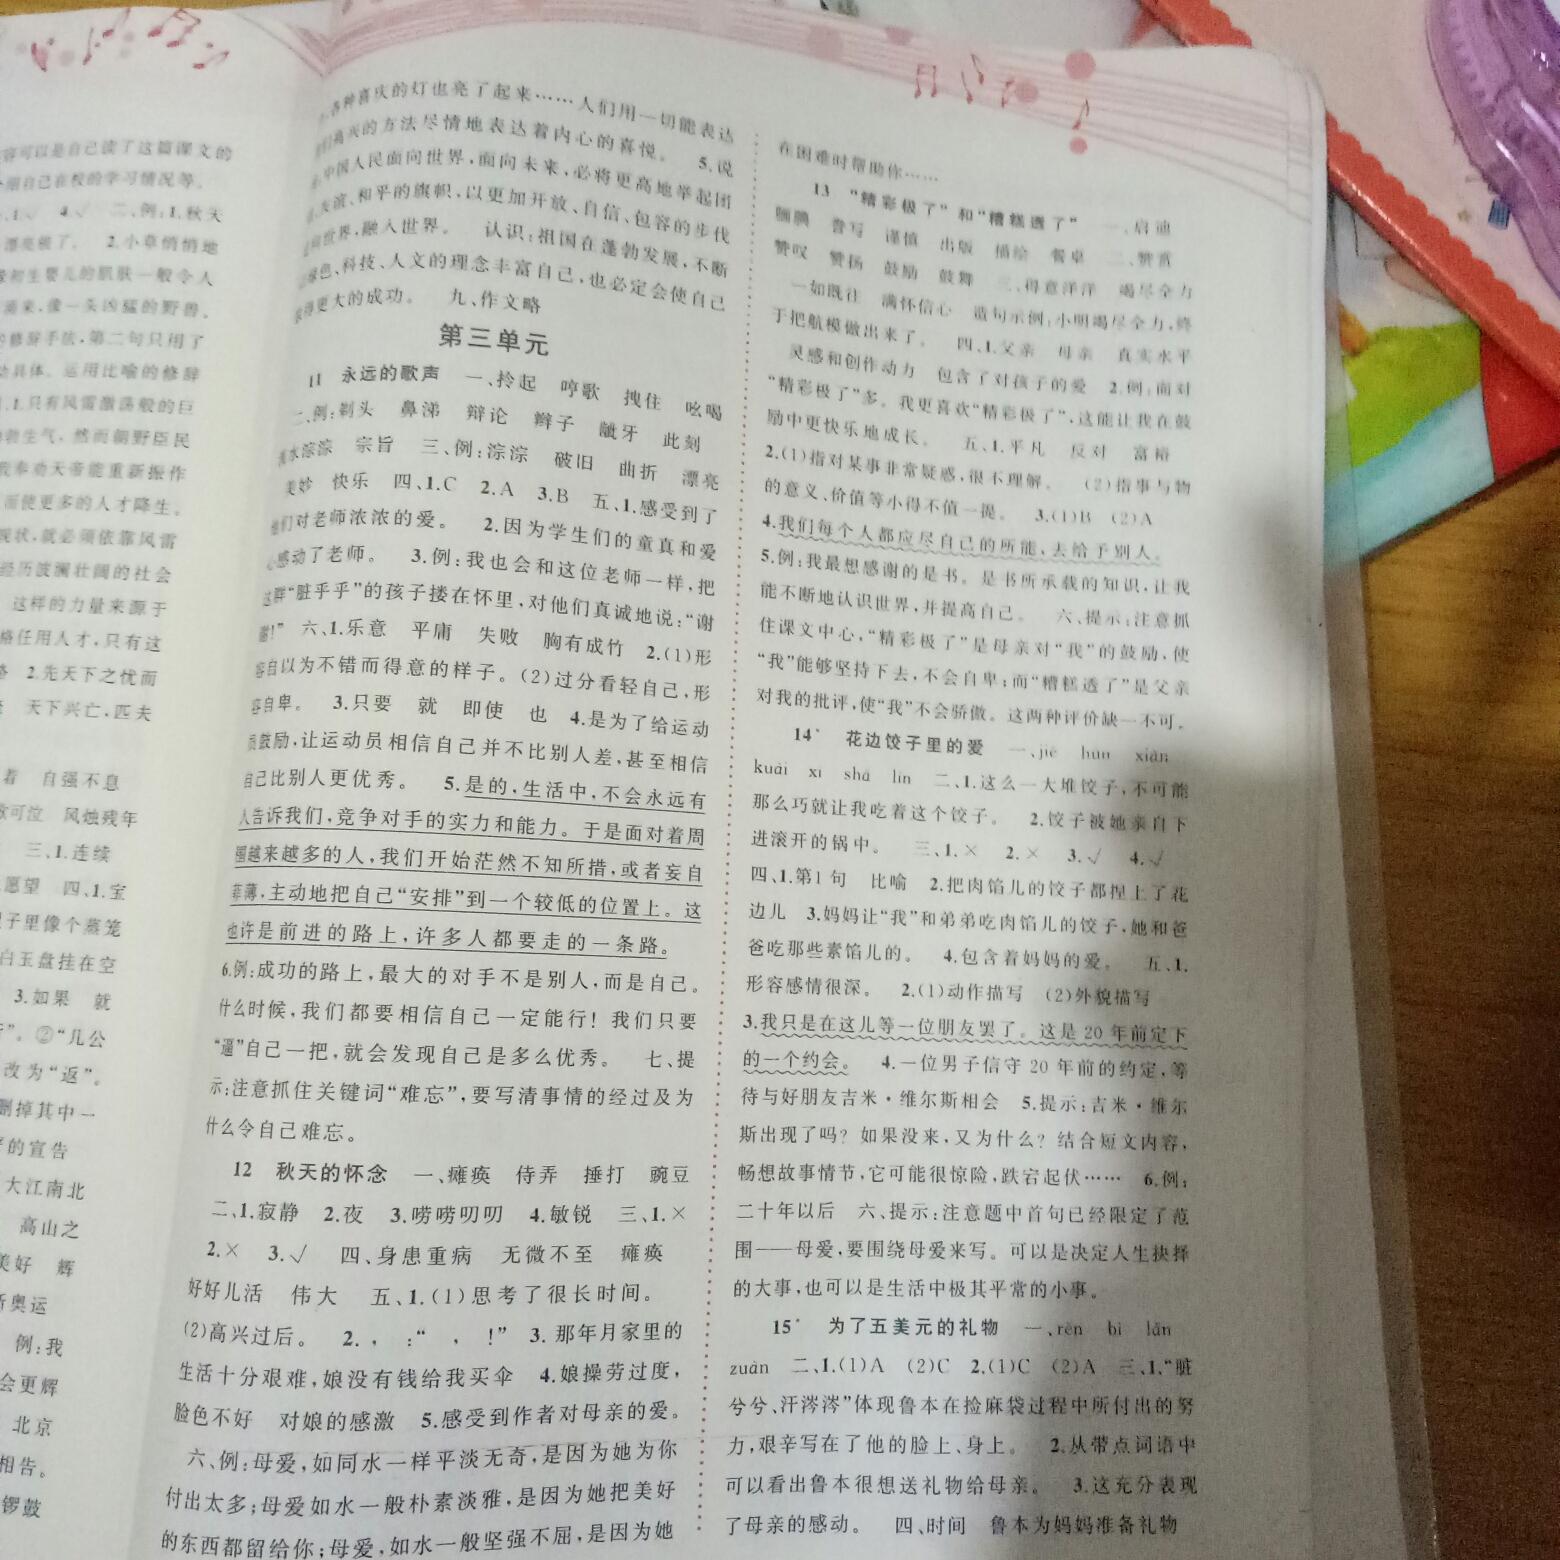 容可以是自己读了这篇课文的
绍自己在校的学习情况等。
1.√ 4.√ 二、例:1.秋天
漂亮极了。 2.小草悄悄地
初生婴儿的肌肤一般令人
涌来,像一头凶猛的野兽。
修辞手法,第二句只用了
具体。运用比喻的修辞
1.只有风雷激荡般的巨
勃生气,然而朝野臣民
我奉劝天帝能重新振作
而使更多的人才降生。
现状,就必须依靠风雷
经历波澜壮阔的社会
这样的力量来源于
格任用人才,只有这
2.先天下之忧而
天下兴亡,匹夫
着 自强不息
歌可泣 风烛残年
三、1.连续
愿望 四、1.宝
子里像个蒸笼
白玉盘挂在空
3.如果 就
”。②“几公
改为“返”。
删掉其中一
的宣告
大江南北
高山之
美好 辉
新奥运
例:我
会更辉
北京
相告。
锣鼓
各种喜庆的灯也亮了起来……人们用一切能表达
高兴的方法尽情地表达着内心的喜悦。 5.说
中国人民面向世界,面向未来,必将更高地举起团
友谊、和平的旗帜,以更加开放、自信、包容的步伐
世界,融入世界。 认识:祖国在蓬勃发展,不断
绿色、科技、人文的理念丰富自己,也必定会使自己
得更大的成功。 九、作文略
第三单元
11 永远的歌声 一、拎起 哼歌 拽住 吆喝
二、例:剃头 鼻涕 辩论 辫子 龇牙 此刻
水淙淙 宗旨 三、例:淙淙 破旧 曲折 漂亮
美妙 快乐 四、1.C 2.A 3.B 五、1.感受到了
他们对老师浓浓的爱。 2.因为学生们的童真和爱
心感动了老师。 3.例:我也会和这位老师一样,把
这群“脏乎乎”的孩子搂在怀里,对他们真诚地说:“谢
谢!” 六、1.乐意 平庸 失败 胸有成竹 2.(1)形
容自以为不错而得意的样子。(2)过分看轻自己,形
容自卑。 3.只要 就 即使 也 4.是为了给运动
员鼓励,让运动员相信自己并不比别人差,甚至相信
自己比别人更优秀。 5.是的,生活中,不会永远有
人告诉我们,竞争对手的实力和能力。于是面对着周
围越来越多的人,我们开始茫然不知所措,或者妄自
菲薄,主动地把自己“安排”到一个较低的位置上。这
也许是前进的路上,许多人都要走的一条路。
6.例:成功的路上,最大的对手不是别人,而是自己。
什么时候,我们都要相信自己一定能行!我们只要
“逼”自己一把,就会发现自己是多么优秀。 七、提
示:注意抓住关键词“难忘”,要写清事情的经过及为
什么令自己难忘。
12 秋天的怀念 一、瘫痪 侍弄 捶打 豌豆
二、1.寂静 2.夜 3.唠唠叨叨 4.敏锐 三、1.×
2.× 3.√ 四、身患重病 无微不至 瘫痪
好好儿活 伟大 五、1.(1)思考了很长时间。
(2)高兴过后。 2. , :“ , !” 3.那年月家里的
生活十分艰难,娘没有钱给我买伞 4.娘操劳过度,
脸色不好 对娘的感激 5.感受到作者对母亲的爱。
六、例:母爱,如同水一样平淡无奇,是因为她为你
付出太多;母爱如水一般朴素淡雅,是因为她把美好
的东西都留给你;母爱,如水一般坚强不屈,是因为她
在困难时帮助你……
13 “精彩极了”和“糟糕透了” 一、启迪
腼腆 誊写 谨慎 出版 描绘 餐桌 二、赞赏
赞叹 赞扬 鼓励 鼓舞 三、得意洋洋 竭尽全力
一如既往 满怀信心 造句示例:小明竭尽全力,终
于把航模做出来了。 四、1.父亲 母亲 真实水平
灵感和创作动力 包含了对孩子的爱 2.例:面对
“精彩极了”多。我更喜欢“精彩极了”,这能让我在鼓
励中更快乐地成长。 五、1.平凡 反对 富裕
2.(1)指对某事非常疑惑,很不理解。 (2)指事与物
的意义、价值等小得不值一提。 3.(1)B (2)A
4.我们每个人都应尽自己的所能,去给予别人。
5.例:我最想感谢的是书。是书所承载的知识,让我
能不断地认识世界,并提高自己。 六、提示:注意抓
住课文中心,“精彩极了”是母亲对“我”的鼓励,使
“我”能够坚持下去,不会自卑;而“糟糕透了”是父亲
对我的批评,使“我”不会骄傲。这两种评价缺一不可。
14* 花边饺子里的爱 一、jié hún xiàn
kuài xī shá lìn 二、1.这么一大堆饺子,不可能
那么巧就让我吃着这个饺子。 2.饺子被她亲自下
进滚开的锅中。 三、1.× 2.× 3.√ 4.√
四、1.第1句 比喻 2.把肉馅儿的饺子都捏上了花
边儿 3.妈妈让“我”和弟弟吃肉馅儿的饺子,她和爸
爸吃那些素馅儿的。 4.包含着妈妈的爱。 五、1.
形容感情很深。 2.(1)动作描写 (2)外貌描写
3.我只是在这儿等一位朋友罢了。这是20年前定下
的一个约会。 4.一位男子信守20年前的约定,等
待与好朋友吉米·维尔斯相会 5.提示:吉米·维尔
斯出现了吗?如果没来,又为什么?结合短文内容,
畅想故事情节,它可能很惊险,跌宕起伏…… 6.例:
二十年以后 六、提示:注意题中首句已经限定了范
围——母爱,要围绕母爱来写。可以是决定人生抉择
的大事,也可以是生活中极其平常的小事。
15* 为了五美元的礼物 一、rěn bì lán
zuàn 二、1.(1)A (2)C 2.(1)C (2)A 三、1.“脏
兮兮、汗涔涔”体现鲁本在捡麻袋过程中所付出的努
力,艰辛写在了他的脸上、身上。 2.从带点词语中
可以看出鲁本很想送礼物给母亲。 3.这充分表现
了母亲的感动。 四、时间 鲁本为妈妈准备礼物